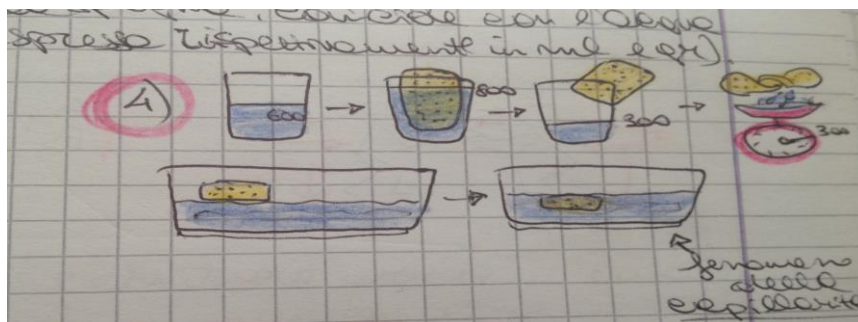 coincide con l'acqua
rispettivamente in ml e gr).
4)
600
800
300
300
fenomeno
della
capillarità